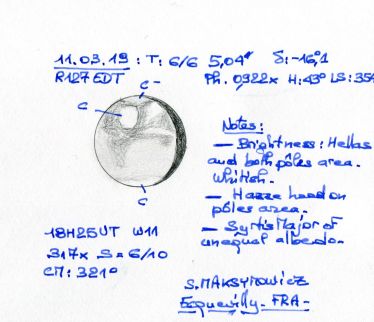 11.03.19 : T: 6/6 5,04" δ: -16,1
R127 EDT Ph. 0,922x H: 43° LS: 354
C-
C
C
Notes:
— Brightness: Hellas
and both pôles area.
Whitish.
— Hazze hood on
pôles area.
— Syrtis Major of
unequal albedo.
18H25UT W11
317x S= 6/10
CM: 321°
S. MAKSYMOWICZ
Ecquevilly. FRA.